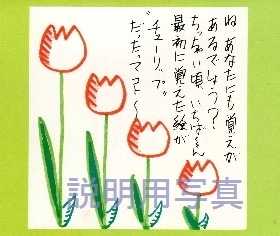 ね あなたにも覚えが
あるでしょう?
ちっちゃい頃、いちばーん
最初に覚えた絵が
"チューリップ"
だったってコト〜
説明用写真